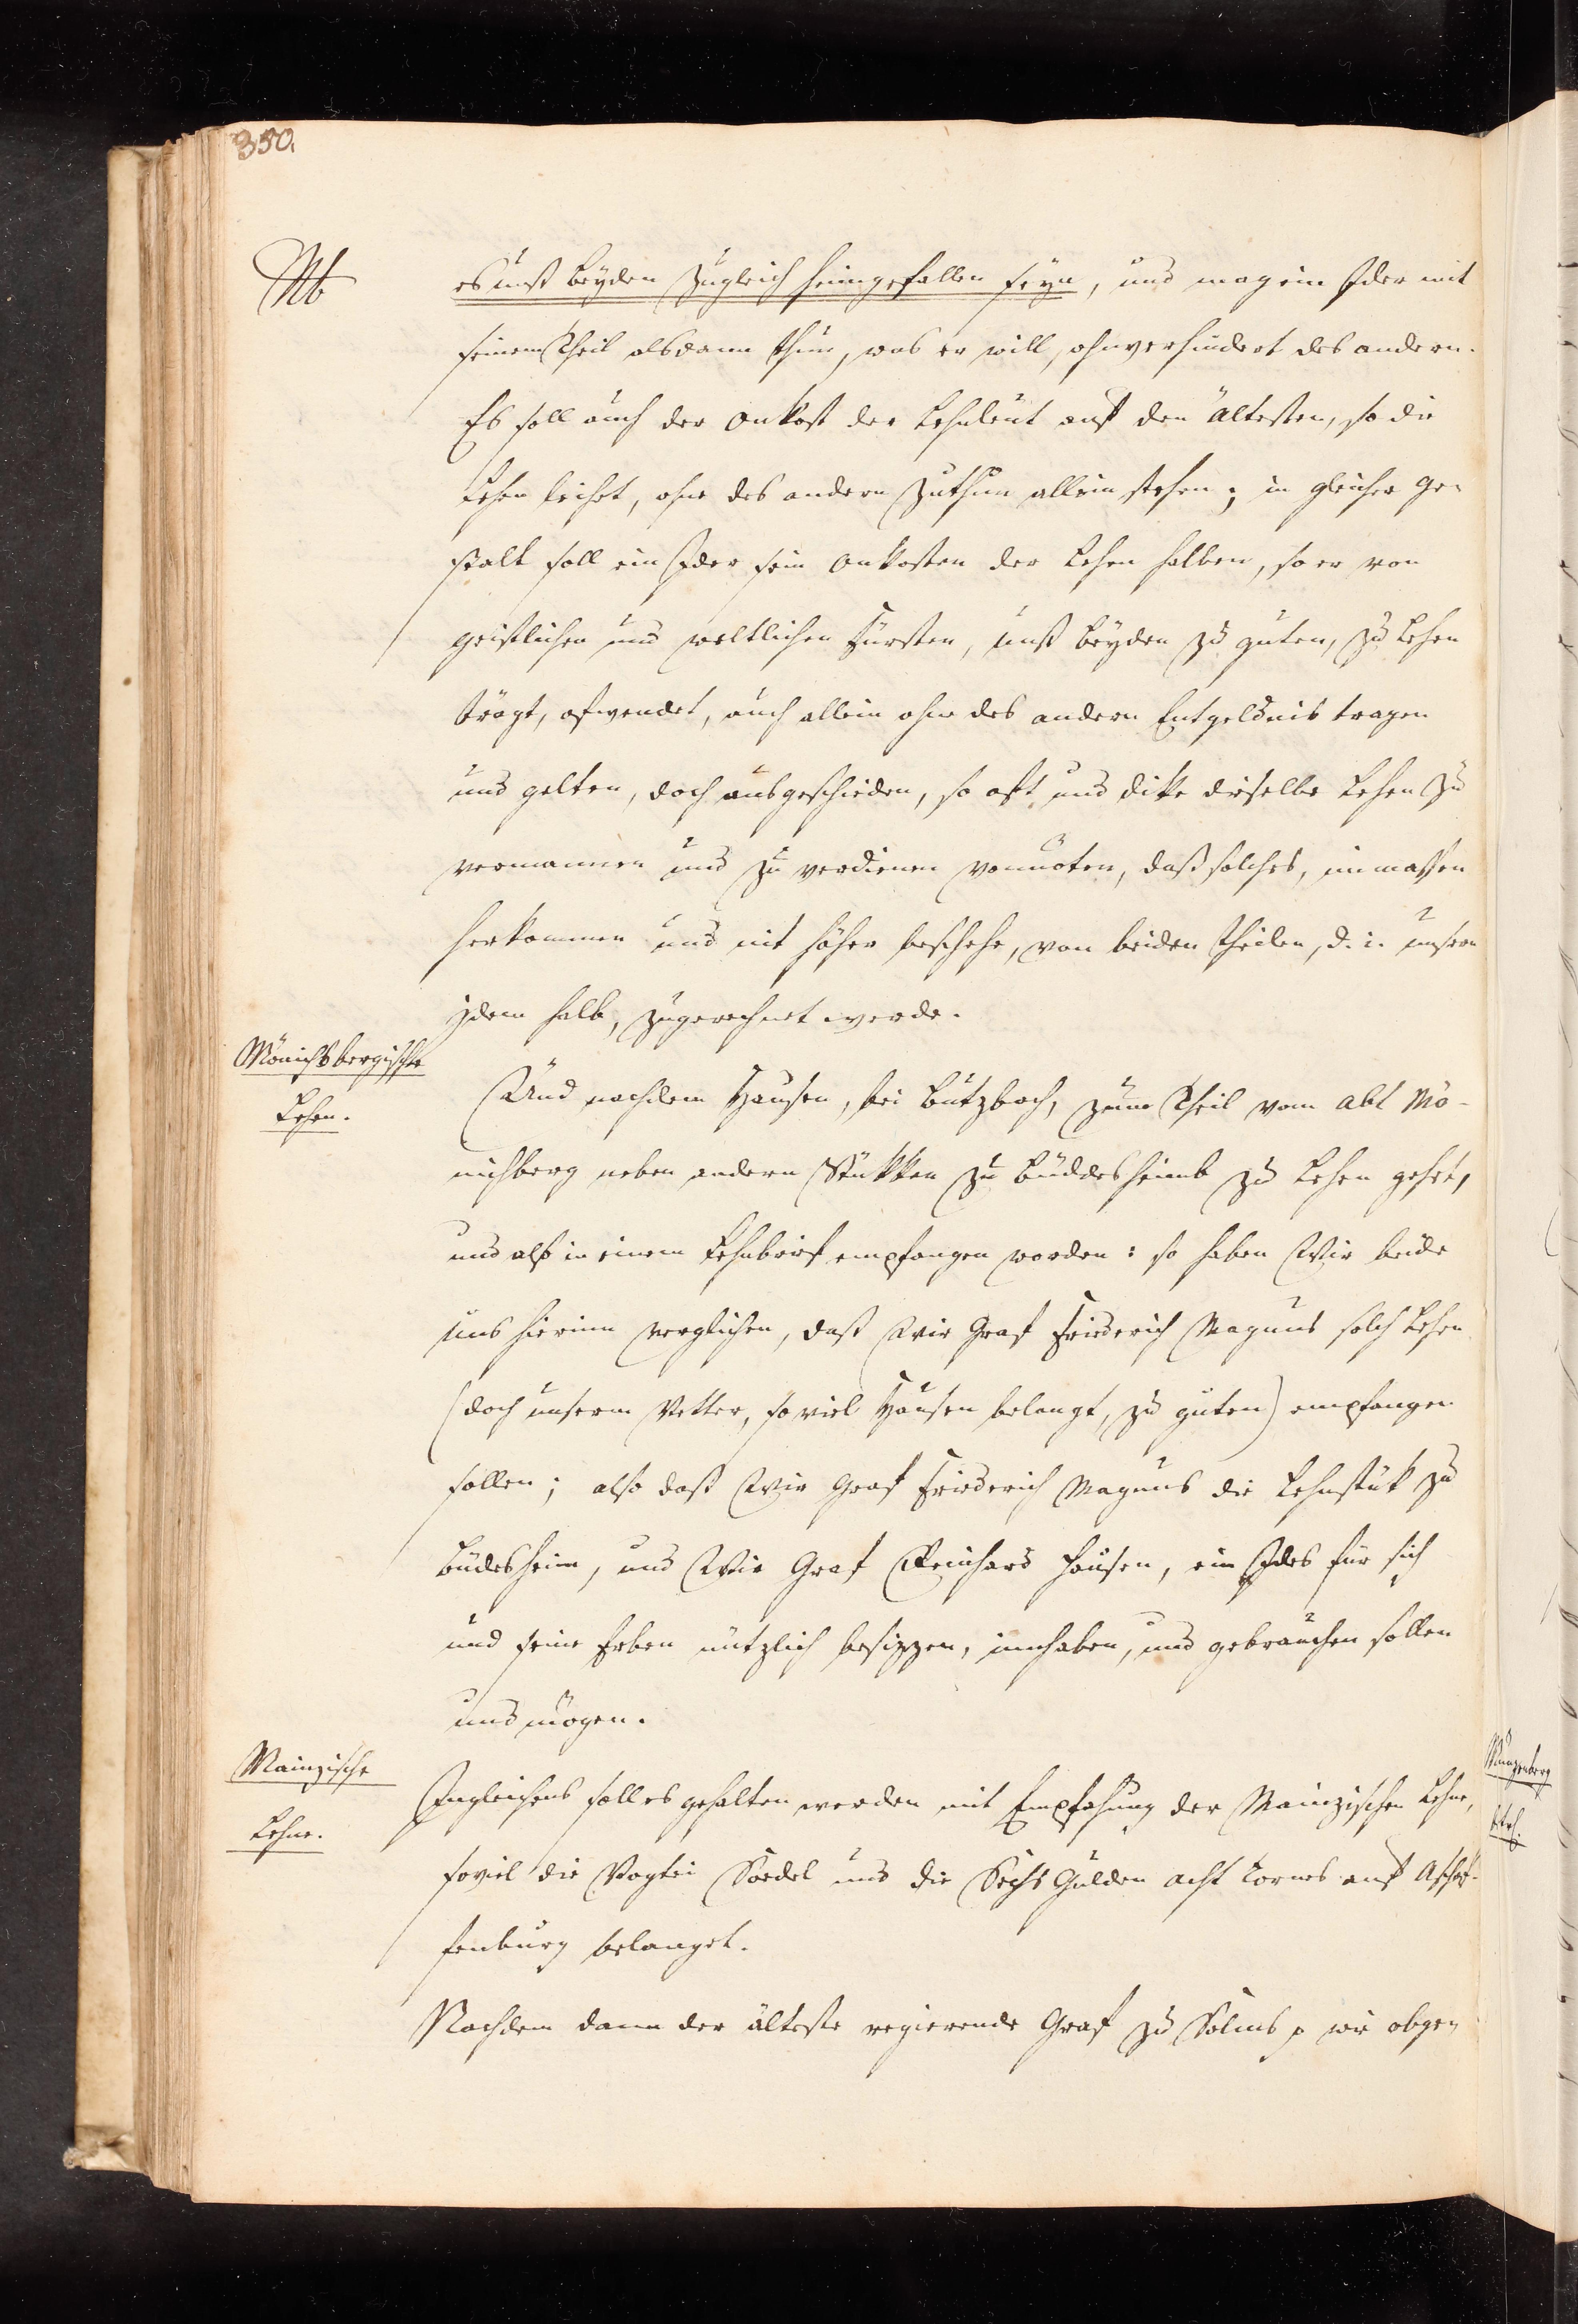 350.
Nb
es unß beyden zugleich heimgefallen seyn, und mag ein Jder mit
seinem Theil alsdann thun, was er will, ohnverhindert des andern.
Es soll auch der Onkost der Lehnleut auf den Ältesten, so die
Lehen leihet, ohne des andern Zuthun allein stehen; in gleicher Ge-
stalt soll ein Jder sein Onkosten der Lehen halben, so er von
geistlichen und weltlichen Fürsten, unß beyden zu guten, zu Lehen
trägt, ufwendet, auch allein ohne des andern Entgeldnis tragen
und gelten, doch ausgeschieden, so oft und dike dieselbe Lehen zu
vermannen und zu verdienen vonnöten, daß solches, inmassen
herkommen und nit höher beschehe, von beiden Theilen, d. i. unsern
jdem halb, zugerechnet werde.
Mönichsbergische
Lehen.
Und nachdem Hausen, bei Butzbach, zum Theil vom Abt Mö-
nichberg neben andern Stükken zu Büddesheimb zu Lehen gehet,
und alß in einem Lehnbrief empfangen worden: so haben Wir beide
uns hierinn verglichen, daß Wir Graf Friederich Magnus solch Lehen
(doch unserm Vetter, so viel Hausen belangt, zu guten) empfangen
sollen; also daß Wir Graf Friederich Magnus die Lehnstük zu
Büdesheim, und Wir Graf Reinhard Hausen, ein Jdes für sich
und seine Erben nützlich besizzen, innhaben, und gebrauchen sollen
und mögen.
Mainzische
Lehne.
Ingleichens soll es gehalten werden mit Empfahung der Mainzischen Lehne,
soviel die Vogtei Soedel und die Sechs Gulden acht Tornes auf Aschaf-
fenburg belanget.
Nachdem dann der älteste regierende Graf zu Solms p wie obge-
Münzenberg